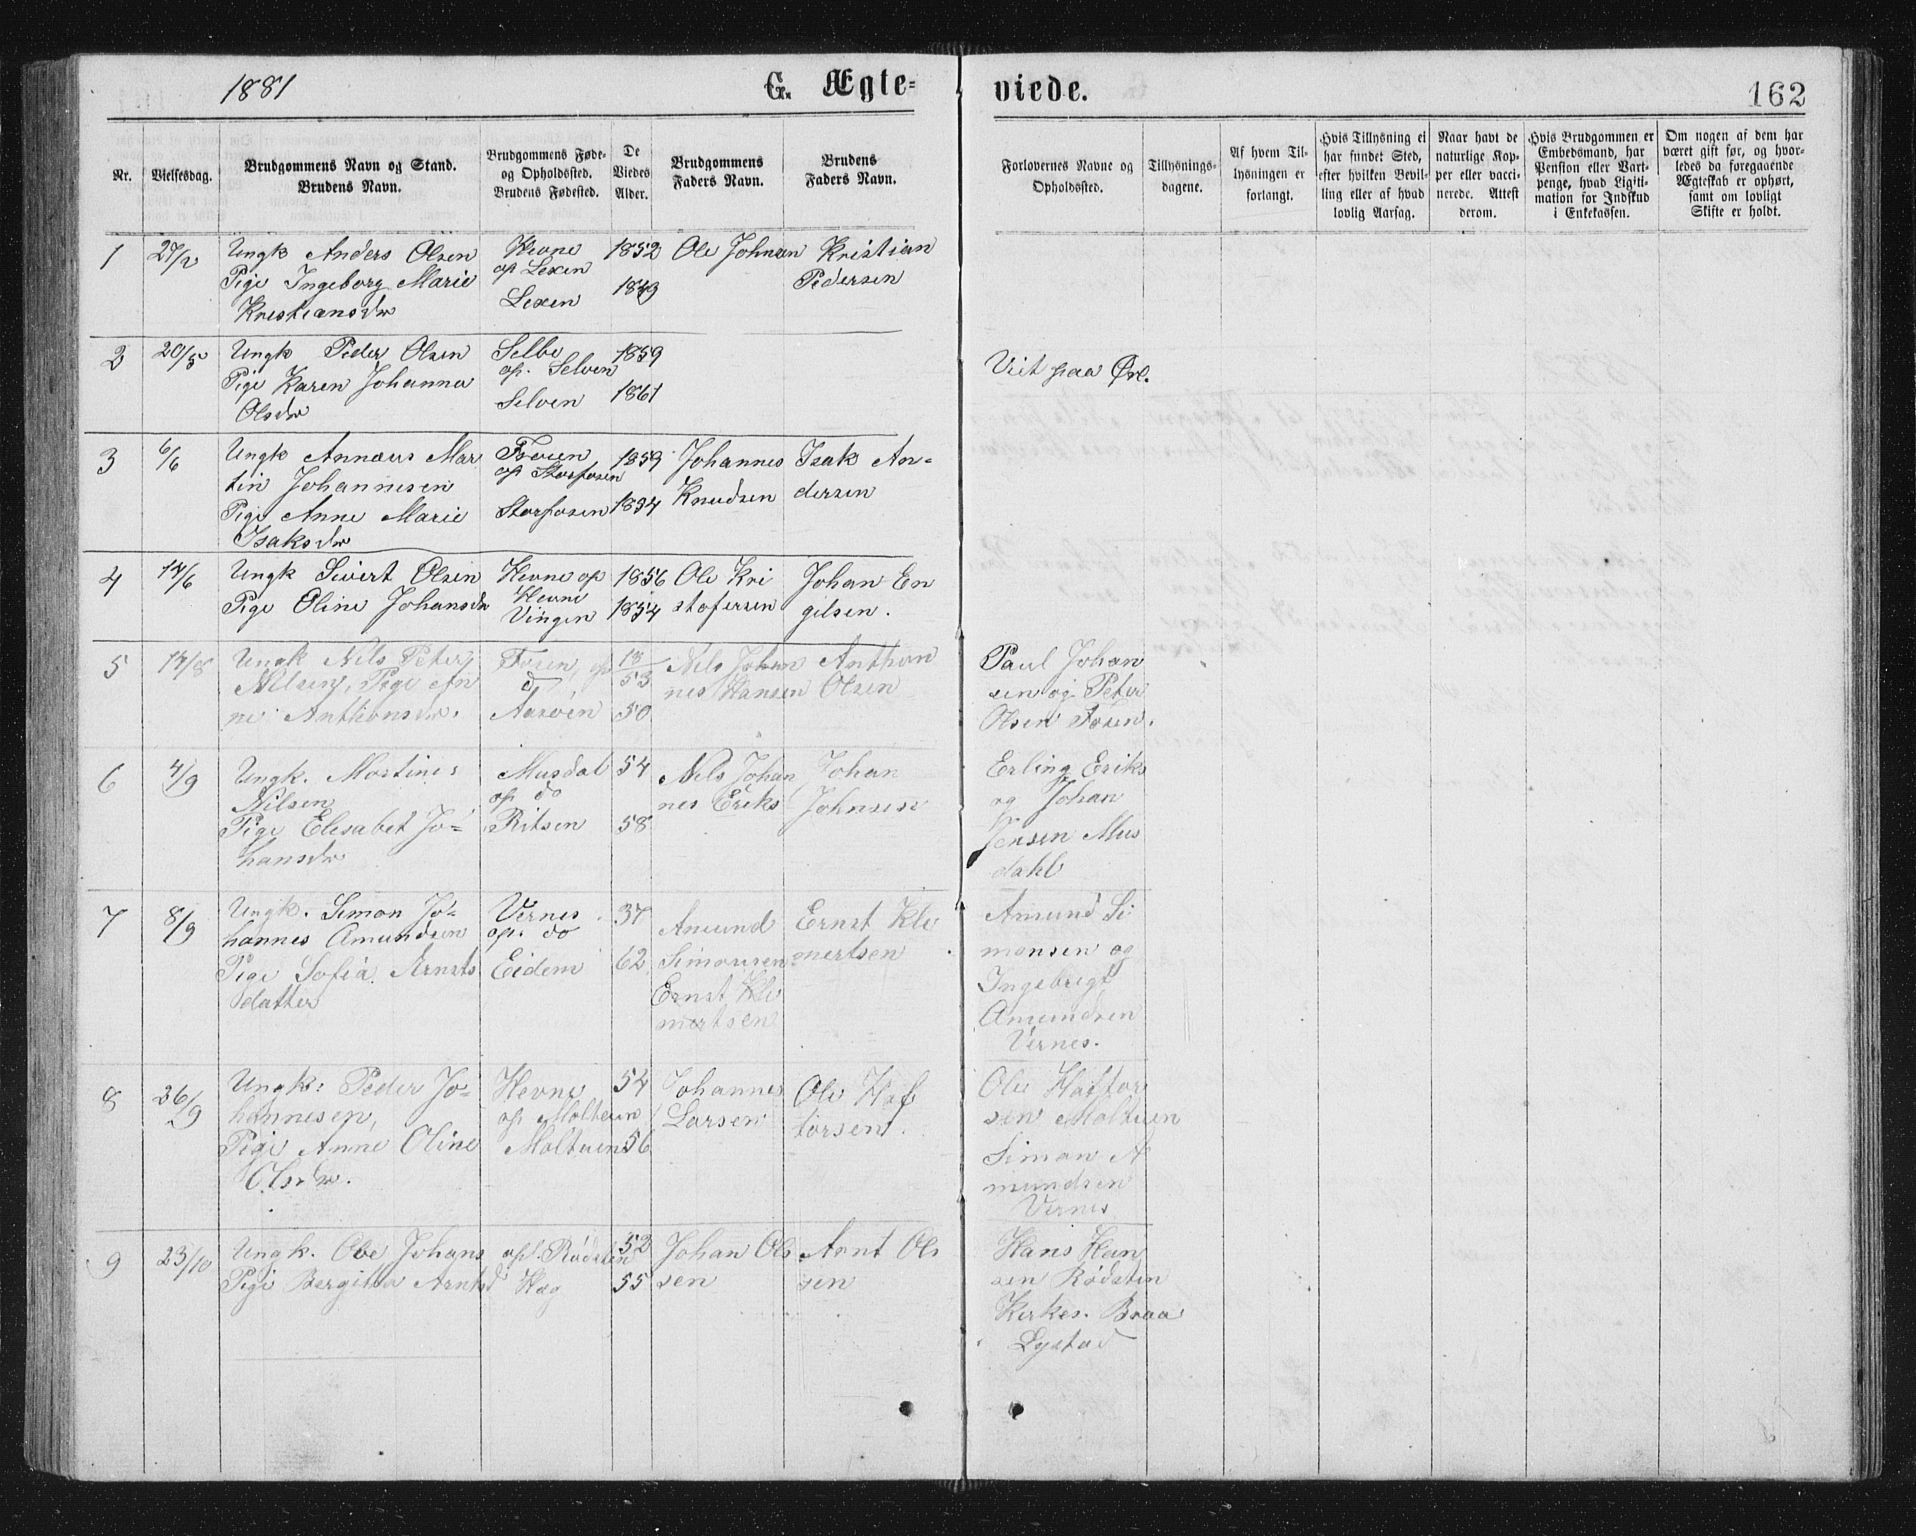 1881
G. Ægte-
viede.
162
Nr.
Vielsesdag.
Brudgommens Navn og Stand.
Brudens Navn.
Brudgommens Føde-
og Opholdssted.
Brudens Fødested.
De
Viedes
Alder.
Brudgommens
Faders Navn.
Brudens
Faders Navn.
Forlovernes Navne og
Opholdssted.
Tillysnings-
dagene.
Af hvem Til-
lysningen er
forlangt.
Hvis Tillysning ei
har fundet Sted,
efter hvilken Bevil-
ling eller af hvad
lovlig Aarsag.
Naar havt de
naturlige Kop-
per eller vacci-
nerede. Attest
derom.
Hvis Brudgommen er
Embedsmand, har
Pension eller Vart-
penge, hvad Ligiti-
mation for Indskud
i Enkekassen.
Om nogen af dem har
været gift før, og hvor-
ledes da foregaaende
Ægteskab er ophørt,
samt om lovligt
Skifte er holdt.
1
27/2
Ungk Anders Olsen
Pige Ingeborg Marie
Kristiansdr
Hevne
op Lexen
Lexen
1852
Ole Johnsen
Kristian
Pedersen
2
20/5
Ungk Peder Olsen
Pige Karen Johanna
Olsdr
Selbo
op. Selven
Selven
1859
1861
Viet paa Ørl.
3
6/6
Ungk Annæus Mar
tin Johannesen
Pige Anne Marie
Isaksdr
Froien
op Storfosen
Storfosen
1859
1834
Johannes
Knudsen
Isak An-
dersen
4
14/6
Ungk Sivert Olsen
Pige Oline Johansdr
Hevne op
Hevne
Vingen
1856
1854
Ole Kri
stofersen
Johan En
gelsen.
5
14/8
Ungk Nils Peter
Nilsen, Pige An
ne Anthonsdr.
Fosen, op
do
Aasven
18/53
50
Nils Johan
nes Hansen
Anthon
Olsen
Paul Johan
sen og Peter
Olsen Fosen.
6
4/9
Ungk. Martines
Nilsen
Pige Elesabet Jo-
hansdr
Musdal
op do
Ritsen
54
58
Nils Johan
nes Eriks
Johan
Johnsen
Erling Eriks
og Johan
Jensen Mus
dahl
7
8/9
Ungk. Simon Jo-
hannes Amundsen
Pige Sofia Arnsts
datter
Vernes
op. do
Eidem
37
62
Amund
Simonsen
Ernst Kle
mertsen
Ernst Kle
mertsen
Amund Si
monsen og
Ingebrigt
Amundsen
Vernes.
8
26/9
Ungk: Peder Jo-
hannesen,
Pige Anne Oline
Olsdr.
Hevne
op Moltuen
Moltuen
54
56
Johannes
Larsen
Ole Haf
torsen.
Ole Haftor
sen Moltuen
Simon A
mundsen
Vernes
9
23/10
Ungk. Ole Johans
Pige Bergitta Arntsd
op. Rødsten
Hag
52
55
Johan Ols
sen
Arnt Ols
sen
Hans Han
sen Rødsten
Kirkes. Braa
Lystad